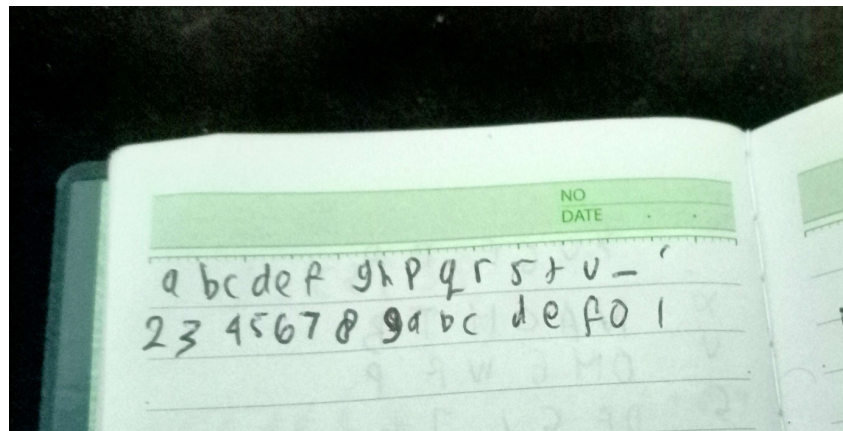 NO
DATE
a b c d e f g h p q r s t u _ '
2 3 4 5 6 7 8 9 a b c d e f 0 1